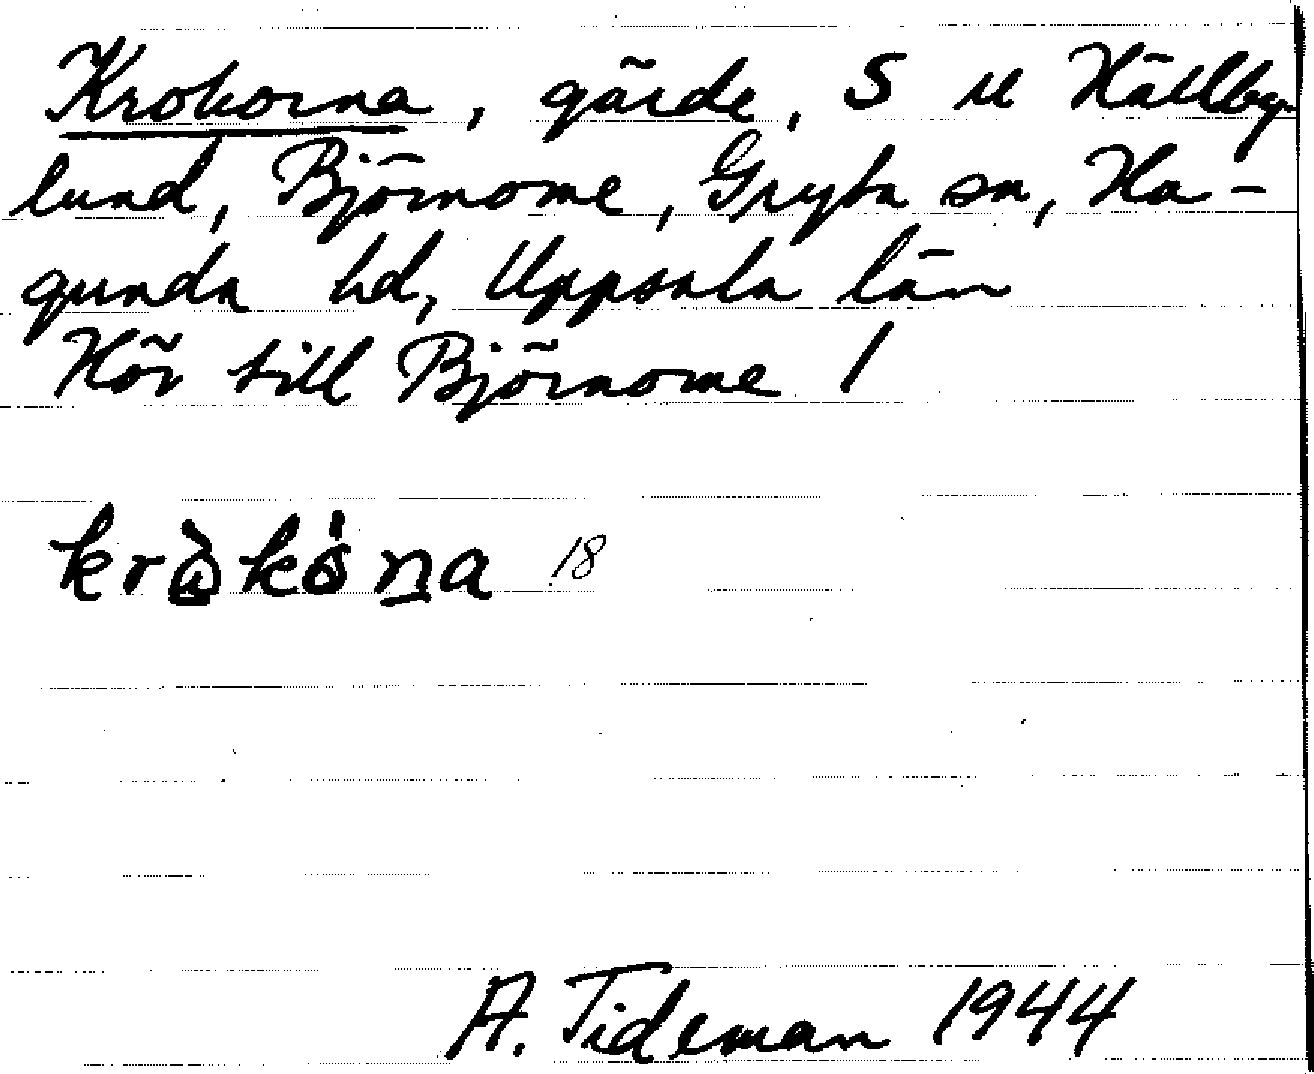 Krokorna, gärde, S u Hällby-
lund, Björnome, Gryta sn, Ha-
gunda hd, Uppsala län
Hör till Björnome 1
kròkȯ́ṉa 18
A. Tideman 1944